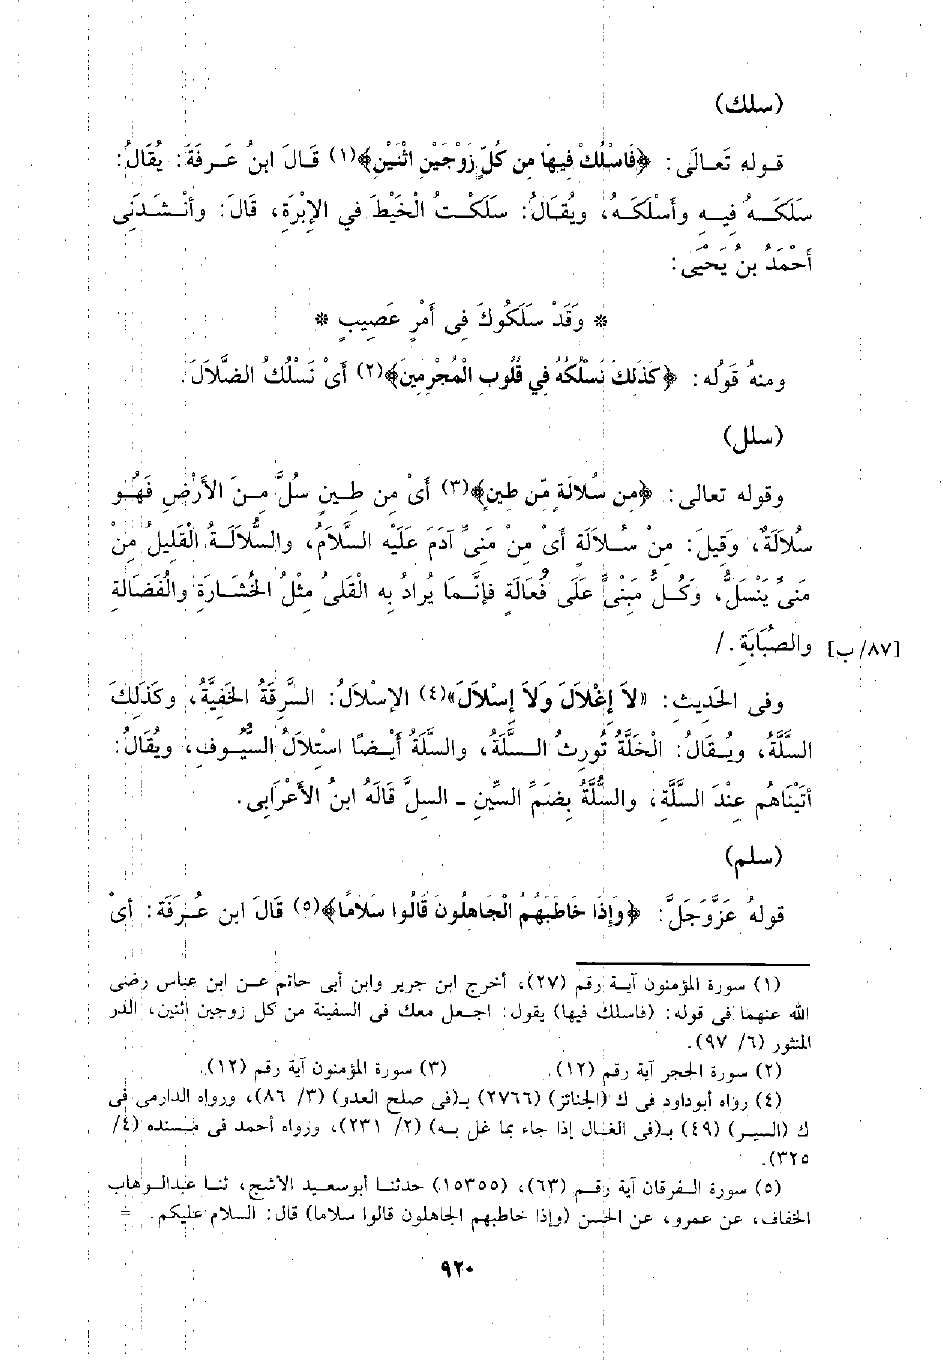 (سلك)
قوله تَعالَى: ﴿فَاسْلُكْ فِيهَا مِن كُلٍّ زَوْجَيْنِ اثْنَيْنِ﴾(١) قَالَ ابنُ عَرفَةَ: يُقَالُ:
سَلَكَهُ فيه وأسْلَكَهُ، ويُقَالُ: سَلَكْتُ الْخَيْطَ في الإبْرَة، قَالَ: وأنْشَدَنِى
أحْمَدُ بنُ يَحْيَى:
* وَقَدْ سَلَكُوكَ فِى أَمْرٍ عَصِيبٍ *
ومنهُ قَوْلُه: ﴿كَذَلِكَ نَسْلُكُهُ فِي قُلُوبِ الْمُجْرِمِينَ﴾(٢) أىْ نَسْلُكُ الضَّلاَلَ.
(سلل)
وقوله تعالى: ﴿مِن سُلالَةٍ مِّن طِينٍ﴾(٣) أىْ مِن طِينٍ سُلَّ مِنَ الأَرْضِ فَهُو
سُلاَلَةٌ، وَقِيلَ: مِنْ سُلاَلَةٍ أىْ مِنْ مَنىِّ آدَمَ عَلَيْه السَّلاَمُ، والسُّلاَلَةُ الْقَلِيلُ مِنْ
مَنىٍّ يَنْسَلُّ، وَكُلُّ مَبْنىٍّ عَلَى فُعَالَةٍ فإنَّمَا يُرَادُ به الْقَلَى مِثْلُ الْخُشَارَةِ والْفُضَالَةِ
والصُبَابَةِ. / [٨٧/ ب]
وفى الحَديث: «لاَ إغْلاَلَ وَلاَ إسْلاَلَ»(٤) الإسْلاَلُ: السَّرِقَةُ الْخَفِيَّةُ، وَكَذَلِكَ
السَّلَّةُ، ويُقَالُ: الْخَلَّةُ تُورِثُ السَّلَّةَ، والسَّلَةُ أيْضًا اسْتِلاَلُ السُّيُوفِ، ويُقَالُ:
أتَيْنَاهُم عِنْدَ السَّلَّةِ، والسُّلَّةُ بِضَمِّ السِّينِ - السل قَالَهُ ابنُ الأعْرَابِى.
(سلم)
قولهُ عَزَّوَجَلَّ: ﴿وَإِذَا خَاطَبَهُمُ الْجَاهِلُونَ قَالُوا سَلاَمًا﴾(٥) قَالَ ابن عُرَفَةَ: أىْ
(١) سورة المؤمنون آية رقم (٢٧)، أخرج ابن جرير وابن أبى حاتم عن ابن عباس رضى
الله عنهما فى قوله: (فاسلك فيها) يقول: اجعل معك فى السفينة من كل زوجين اثنين، الدر
المنثور (٦/ ٩٧).
(٢) سورة الحجر آية رقم (١٢). (٣) سورة المؤمنون آية رقم (١٢).
(٤) رواه أبوداود فى ك (الجنائز) (٢٧٦٦) بـ(فى صلح العدو) (٣/ ٨٦)، ورواه الدارمى فى
ك (السير) (٤٩) بـ(فى الغال إذا جاء بما غل به) (٢/ ٢٣١)، ورواه أحمد فى مسنده (٤/
٣٢٥).
(٥) سورة الفرقان آية رقم (٦٣)، (١٥٣٥٥) حدثنا أبوسعيد الاشج، ثنا عبدالوهاب
الخفاف، عن عمرو، عن الحسن (وإذا خاطبهم الجاهلون قالوا سلاما) قال: السلام عليكم. =
٩٢٠